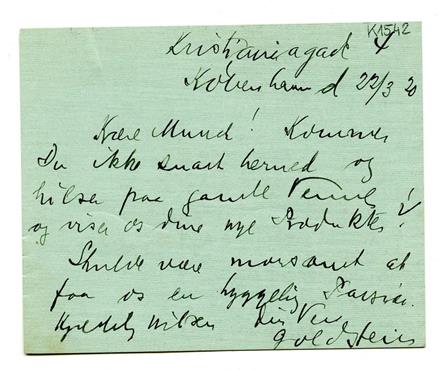 K1542
Kristianiagade 4
København d 22/3 20
Kære Munch! Kommer
Du ikke snart herned og
hilser paa gamle Venner
og viser os dine nye Produkter?
Skulde være morsomt at
faa os en hyggelig Passiar.
Hjertelig Hilsen Din Ven
Goldstein